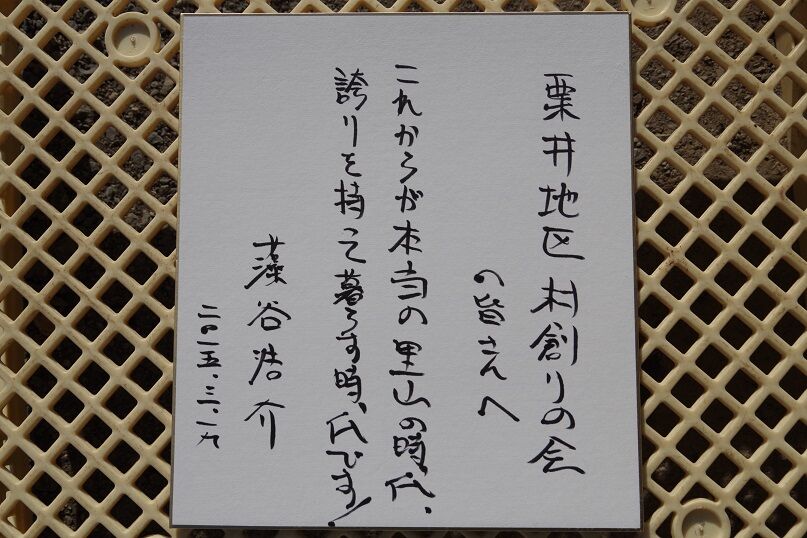 粟井地区村創りの会
の皆さんへ
これからが本当の里山の時代、
誇りを持って暮らす時代です!
藻谷浩介
二〇一五.三.一九